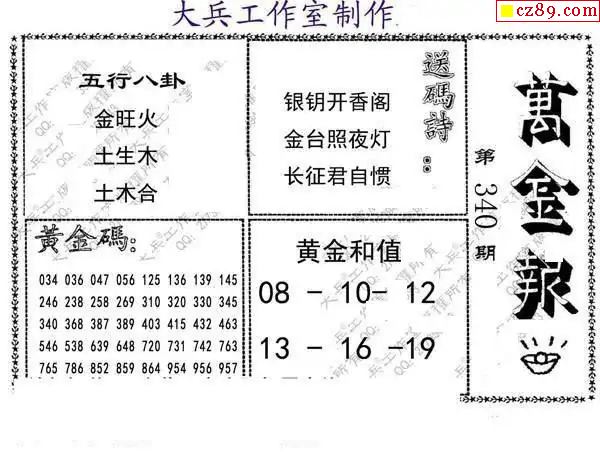 大兵工作室制作
cz89.com
五行八卦
金旺火
土生木
土木合
送碼詩：
银钥开香阁
金台照夜灯
长征君自惯
萬金報
第340期
黃金碼：
034 036 047 056 125 136 139 145
246 238 258 269 310 320 330 345
340 368 387 389 403 415 432 463
546 538 639 648 720 731 742 763
765 786 852 859 864 954 956 957
黄金和值
08 - 10- 12
13 - 16 -19